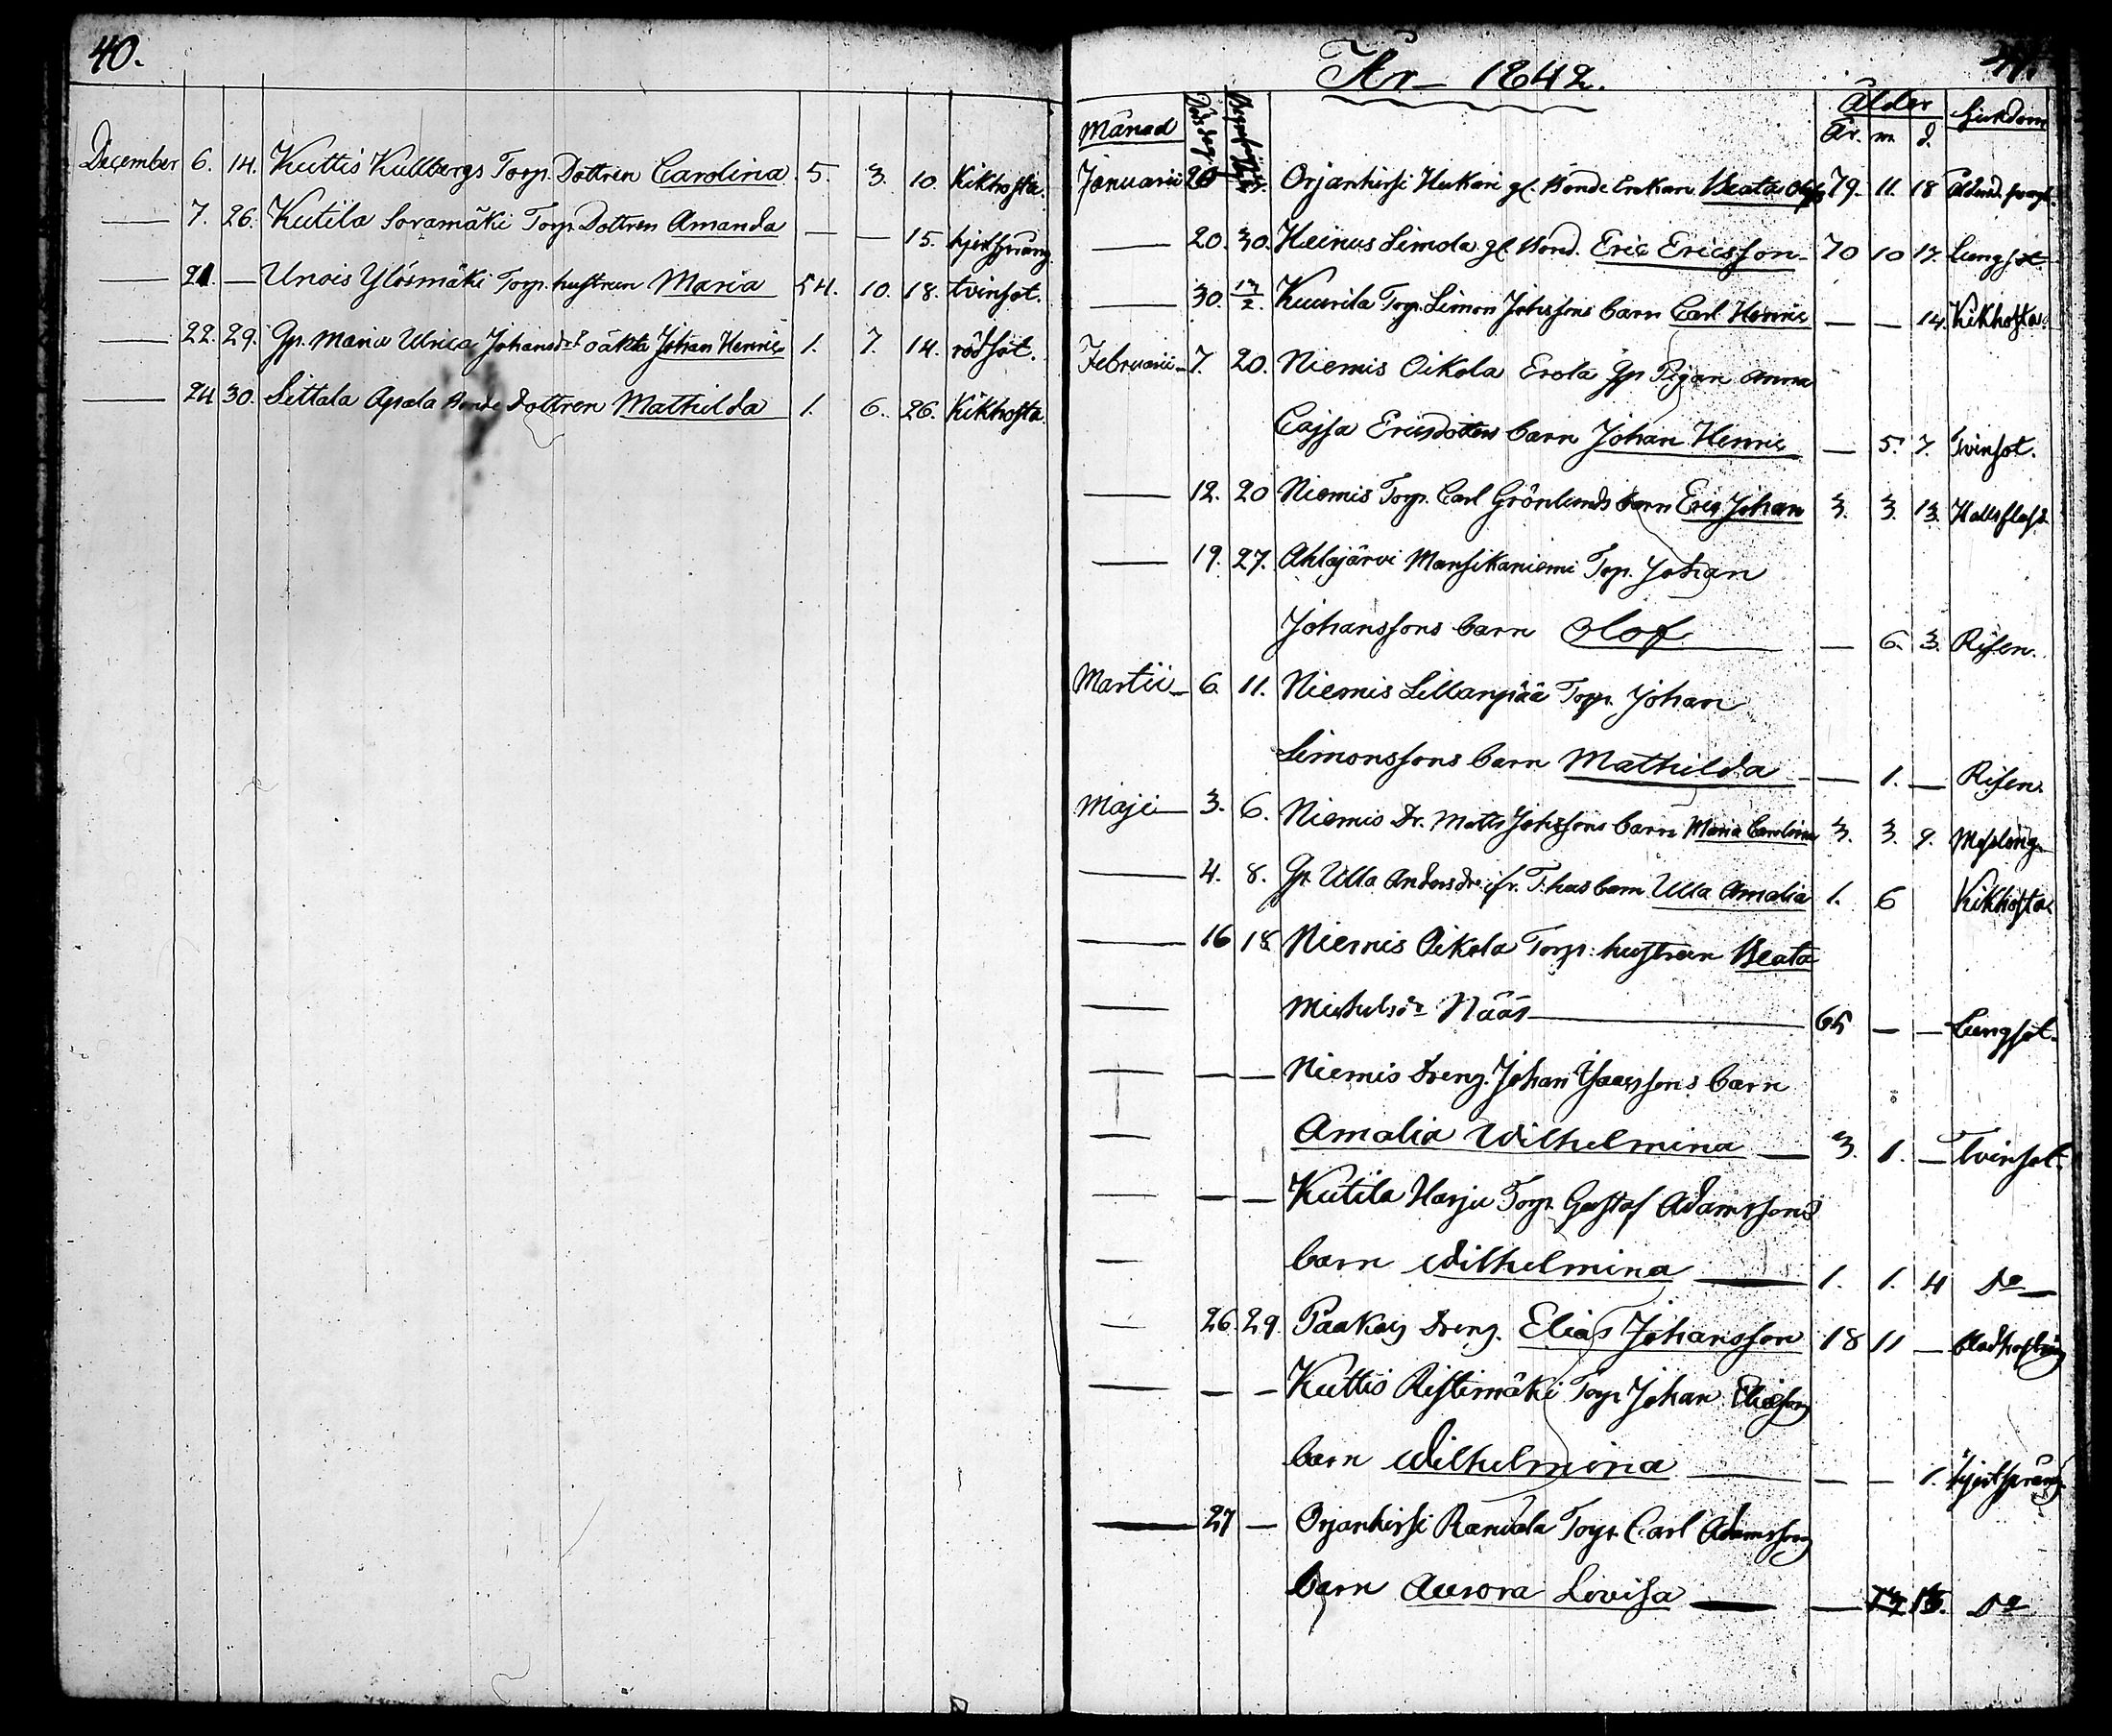 40.
December 6. 14. Kuttis Kullbergs Torp. Dottren Carolina 5. 3. 10. Kikhosta.
— 7. 26. Kutila Soramäki Torp. Dottren Amanda — — 15. hjertsprång
— 21. — Unois Ylösmäki Torp. hustrun Maria 54. 10. 18. tvinsot.
— 22. 29. Gp. Maria Ulrica Johansdr oäkta Johan Henric 1. 7. 14. rödsot.
— 24 30. Sittala Apala Bonde dottren Mathilda 1. 6. 26. Kikhosta.
41.
År 1842.
Månad Dödsdag Begrafning Ålder Sjukdom
År. m. d.
Januarii 20 Orjanhirsi Hukari gl. Bonde Enkan Beata 79. 11. 18
— 20. 30. Heinus Simola gl. Bond. Eric Ericsson 70 10 17. Lungsot
— 30. 13/2. Kuurila Torp. Simon Johssons barn Carl Henric — — 14. Kikhosta
Februarii 7 20. Niemis Oikola Erola Gp Pigan Anna
Cajsa Ericsdotters barn Johan Henric — 5. 7. Tvinsot.
— 12. 20 Niemis Torp. Carl Grönlunds barn Eric Johan 3. 3. 13.
— 19. 27. Ahlajärvi Mansikaniemi Torp. Johan
Johanssons barn Olof — 6. 3. Risen.
Martii 6. 11. Niemis Sillanpää Torp. Johan
Simonssons barn Mathilda — 1. — Risen
Maji 3. 6. Niemis Dr. Matts Johssons barn Maria Carolina 3. 3. 9. Messling
— 4. 8. Gp. Ulla Andersdr. barn Ulla Amalia 1. 6 Kikhosta
— 16 18 Niemis Oikola Torp. hustrun Beata
— Michelsdr Nääs 65 — — Lungsot
— — — Niemis Dreng. Johan Isaacssons barn
— Amalia Wilhelmina — 3. 1. — Tvinsot
— — — Kutila Harju Torp. Gustaf Adamssons
— barn Wilhelmina — 1. 1. 4 Do
— 26. 29 Paakois Dreng. Elias Johansson 18 11 — Blodhostning
— — — Kuttis Ristimäki Torp. Johan Eliasson
barn Wilhelmina — — — 1. hjertsprång
— 27 — Orjanhirsi Randala Torp. Carl Adamsson
barn Aurora Lovisa — — 15. Do